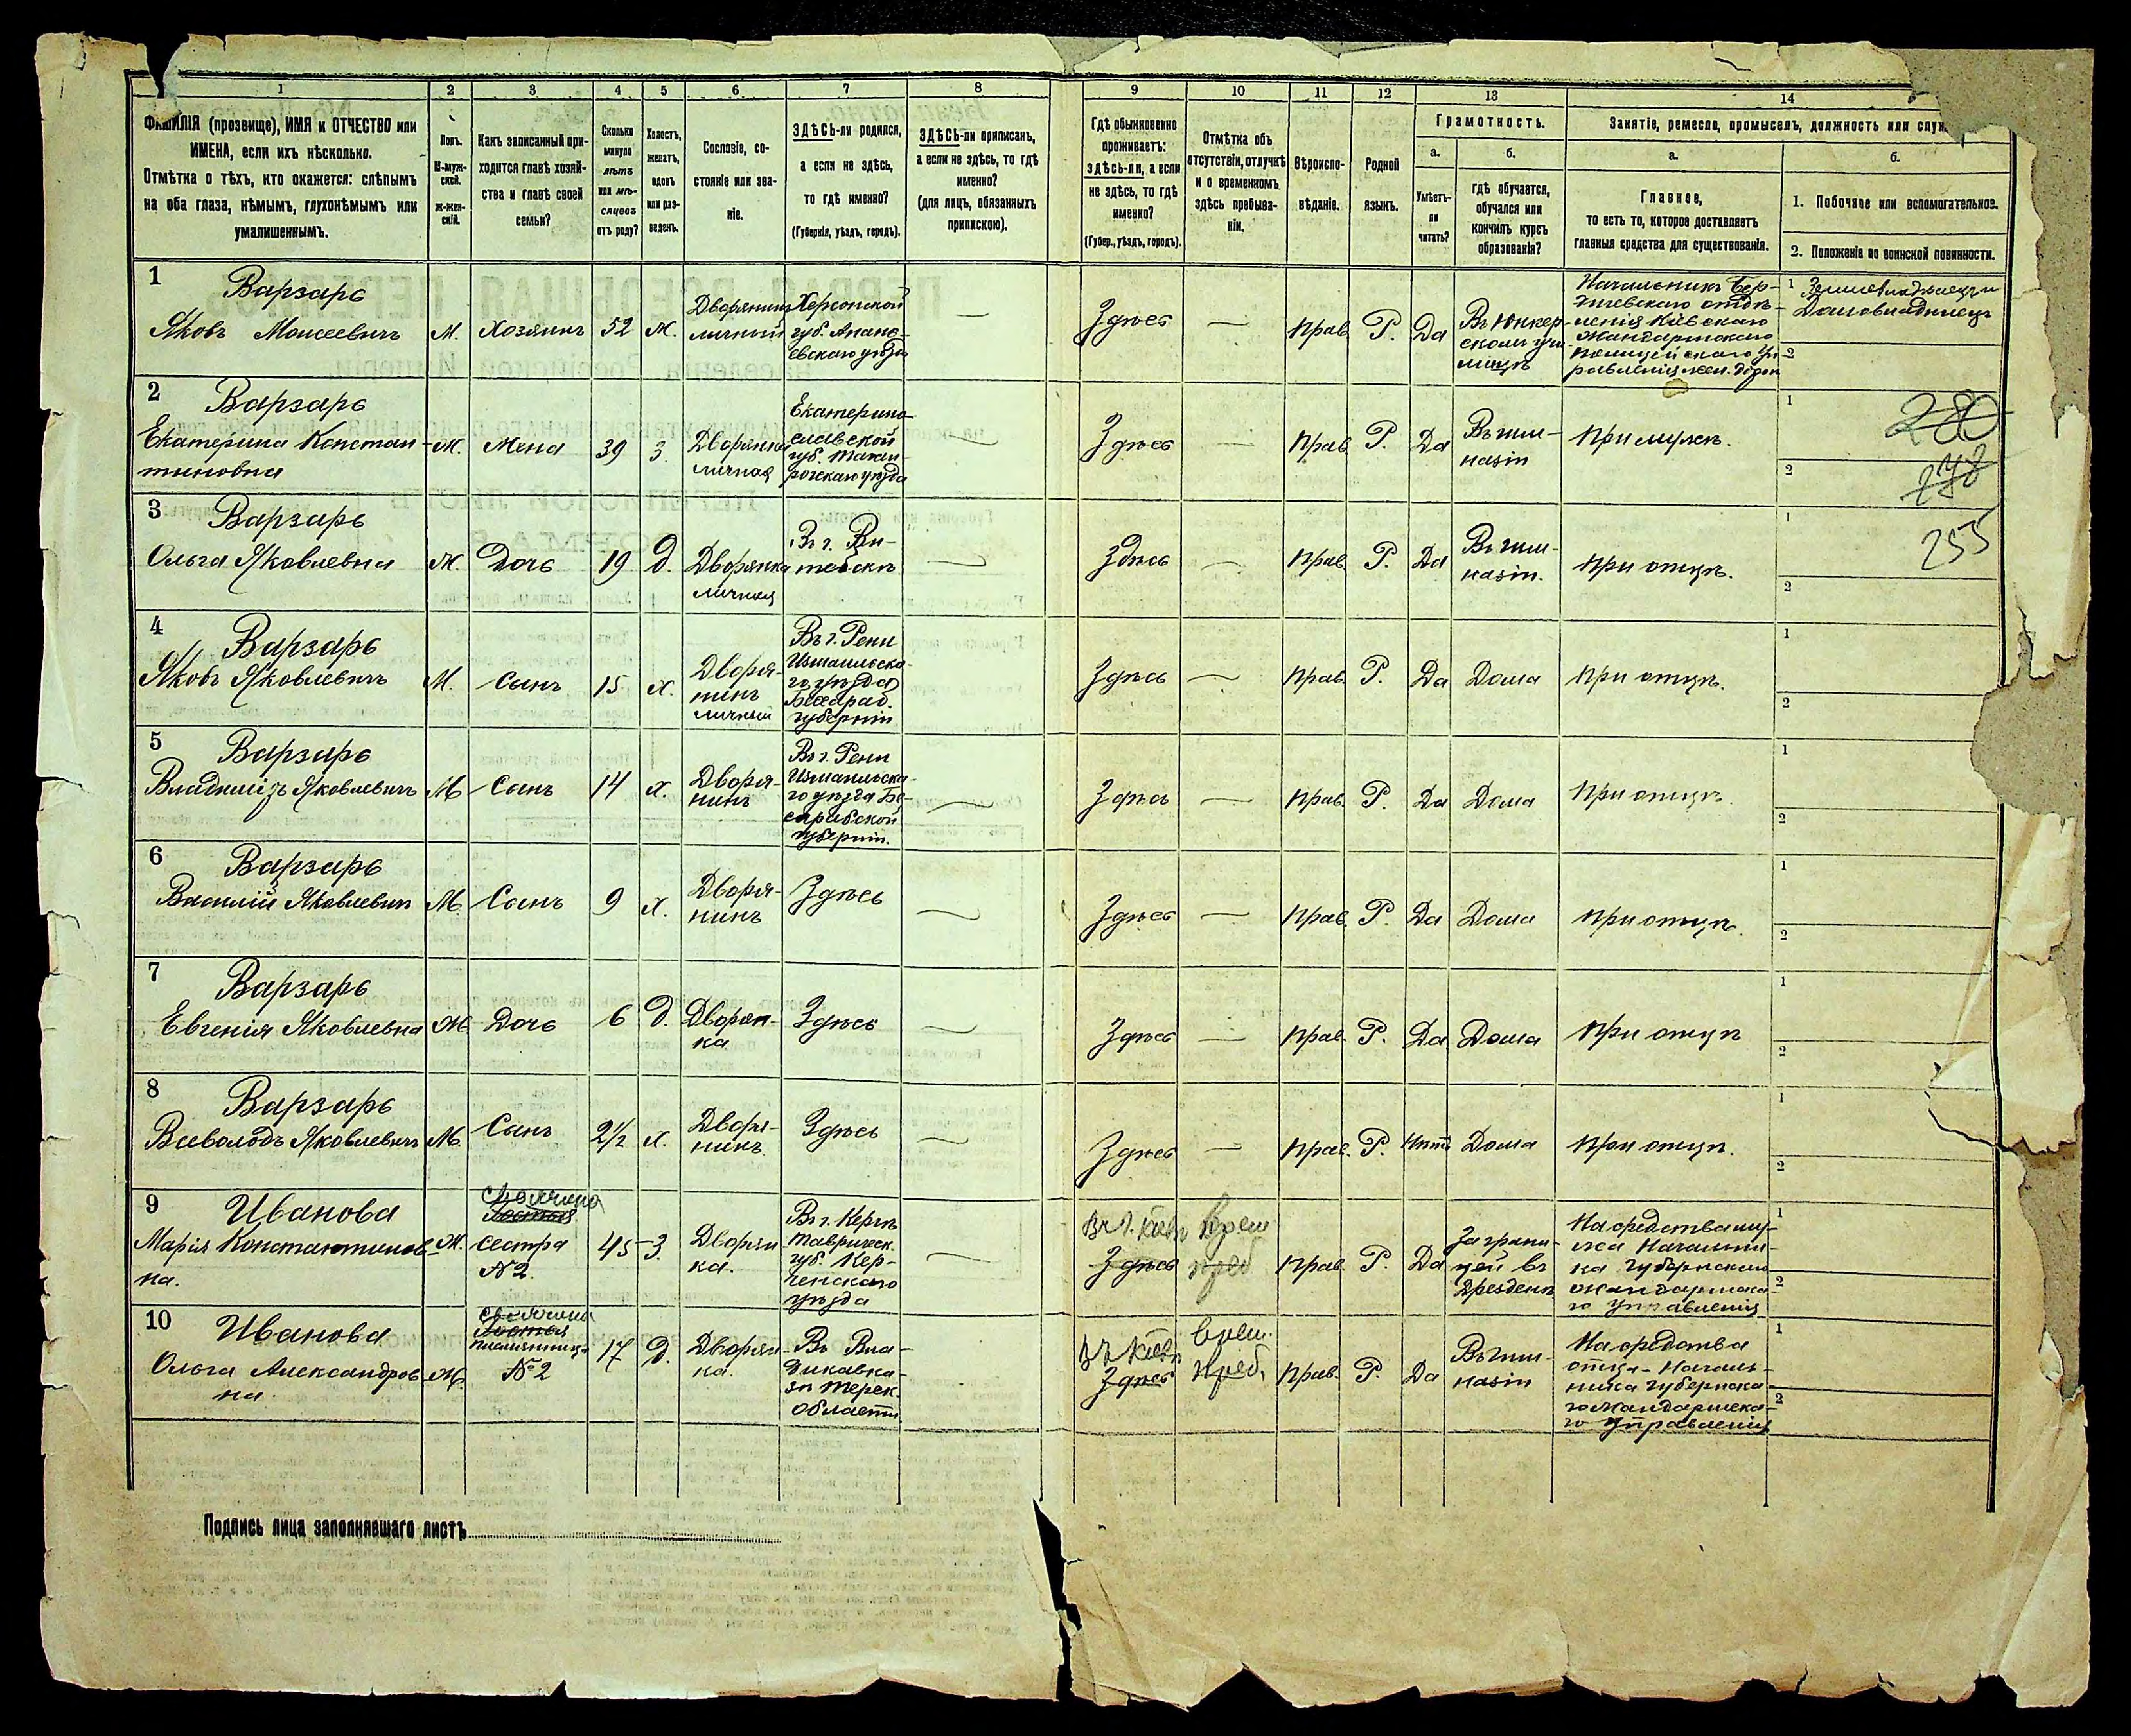 1 2 3 4 5 6 7 8 9 10 11 12 13 14
ФАМИЛІЯ (прозвище), ИМЯ и ОТЧЕСТВО или
ИМЕНА, если ихъ нѣсколько.
Отмѣтка о тѣхъ, кто окажется: слѣпымъ
на оба глаза, нѣмымъ, глухонѣмымъ или
умалишеннымъ.
Полъ.
М-муж-
ской.
Ж-жен-
скій.
Какъ записанный при-
ходится главѣ хозяй-
ства и главѣ своей
семьи?
Сколько
минуло
лѣтъ
или мѣ-
сяцевъ
отъ роду?
Холостъ,
женатъ,
вдовъ
или раз-
веденъ.
Сословіе, со-
стояніе или зва-
ніе.
ЗДѢСЬ-ли родился,
а если не здѣсь,
то гдѣ именно?
(Губернія, уѣздъ, городъ).
ЗДѢСЬ-ли приписанъ,
а если не здѣсь, то гдѣ
именно?
(для лицъ, обязанныхъ
припискою).
Гдѣ обыкновенно
проживаетъ:
здѣсь-ли, а если
не здѣсь, то гдѣ
именно?
(Губер., уѣздъ, городъ).
Отмѣтка объ
отсутствіи, отлучкѣ
и о временномъ
здѣсь пребыва-
ніи.
Вѣроиспо-
вѣданіе.
Родной
языкъ.
Грамотность.
а.
Умѣетъ-
ли
читать?
б.
гдѣ обучается,
обучался или
кончилъ курсъ
образованія?
Занятіе, ремесло, промыселъ, должность или
а.
Главное,
то есть то, которое доставляетъ
главныя средства для существованія.
б.
1. Побочное или вспомогательное.
2. Положеніе по воинской повинности.
1
Варзарь
Яковъ Моисеевичъ
М.
Хозяинъ
52
ж.
Дворянинъ
личный
Херсонской
губ. Анань-
евскаго уѣзда
—
Здѣсь
—
Прав.
Р.
Да
Въ Юнкер-
скомъ учи-
лищѣ
Начальникъ Бер-
дичевскаго отдѣ-
ленія Кіевскаго
Жандармскаго
полицейскаго Уп-
равленія жел. дорог
1 Землевладѣлецъ и
Домовладѣлецъ
2
2
Варзарь
Екатерина Констан-
тиновна
Ж.
Жена
39
З.
Дворянка
личная
Екатерино-
славской
губ. Таган-
рогскаго уѣзда
—
Здѣсь
—
Прав.
Р.
Да
Въ гим-
назіи
При мужѣ.
1
280
2
278
3
Варзарь
Ольга Яковлевна
Ж.
Дочь
19
Д.
Дворянка
личная
Въ г. Ви-
тебскѣ
—
Здѣсь
—
Прав.
Р.
Да
Въ гим-
назіи.
При отцѣ.
1
255
2
4
Варзарь
Яковъ Яковлевичъ
М.
Сынъ
15
х.
Дворя-
нинъ
личный
Въ г. Рени
Измаильска-
го уѣзда
Бессараб.
губерніи
Здѣсь
—
Прав.
Р.
Да
Дома
При отцѣ.
1
2
5
Варзарь
Владиміръ Яковлевичъ
М
Сынъ
14
х.
Дворя-
нинъ
Въ г. Рени
Измаильска-
го уѣзда Бе-
сарабской
губерніи.
—
Здѣсь
—
Прав.
Р.
Да
Дома
При отцѣ.
1
2
6
Варзарь
Василій Яковлевич
М.
Сынъ
9
х.
Дворя-
нинъ
Здѣсь
—
Здѣсь
—
Прав.
Р.
Да
Дома
При отцѣ.
1
2
7
Варзарь
Евгенія Яковлевна
Ж
Дочь
6
Д.
Дворян-
ка
Здѣсь
—
Здѣсь
—
Прав.
Р.
Да
Дома
При отцѣ
1
2
8
Варзарь
Всеволодъ Яковлевичъ
М.
Сынъ
2½
х.
Дворя-
нинъ.
Здѣсь
—
Здѣсь
—
Прав.
Р.
Нѣтъ
Дома
При отцѣ.
1
2
9
Иванова
Марія Константинов-
на.
Ж.
свояченица
сестра
№2.
45
З.
Дворян-
ка.
Въ г. Керчь
Таврическ.
губ. Кер-
ченскаго
уѣзда
—
Въ г. Кіевѣ
Здѣсь
врем
преб
Прав.
Р.
Да
Заграни-
цей въ
Дрезденѣ
На средства му-
жа Начальни-
ка Губернскаго
Жандармска-
го управленія
1
2
10
Иванова
Ольга Александров-
на
Ж.
племянница
№2
17
Д.
Дворян-
ка.
Въ Вла-
дикавка-
зѣ Терек.
Области
Въ Кіевѣ
Здѣсь
врем.
преб.
Прав.
Р.
Да
Въ гим-
назіи
На средства
отца-Началь-
ника Губернска-
го Жандармска-
го Управленія
1
2
Подпись лица заполнявшаго листъ